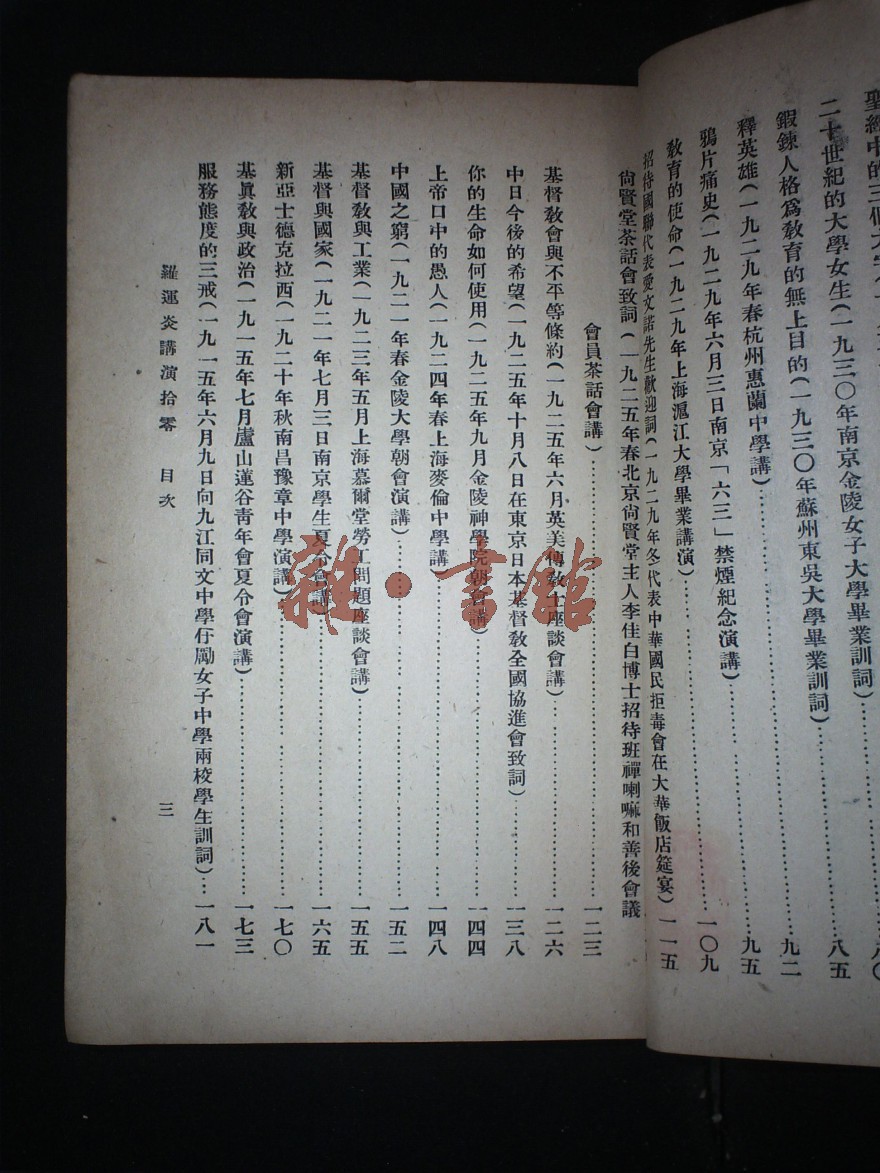 聖經中的三個
二十世紀的大學女生(一九三〇年南京金陵女子大學畢業訓詞)……八五
鍜鍊人格爲敎育的無上目的(一九三〇年蘇州東吳大學畢業訓詞)……九二
釋英雄(一九二九年春杭州惠蘭中學講)……九五
鴉片痛史(一九二九年六月三日南京「六三」禁煙紀念演講)……一〇九
敎育的使命(一九二九年上海滬江大學畢業講演)……
招待國聯代表愛文諾先生歡迎詞(一九二九年冬代表中華國民拒毒會在大華飯店筵宴)一一五
尙賢堂茶話會致詞(一九二五年春北京尙賢堂主人李佳白博士招待班禪喇嘛和善後會議
會員茶話會講)……一二三
基督敎會與不平等條約(一九二五年六月英美傳敎士座談會講)……一二六
中日今後的希望(一九二五年十月八日在東京日本基督敎全國協進會致詞)……一三八
你的生命如何使用(一九二五年九月金陵神學院朝會講)……一四四
上帝口中的愚人(一九二四年春上海麥倫中學講)……一四八
中國之窮(一九二一年春金陵大學朝會演講)……一五二
基督敎與工業(一九二三年五月上海慕爾堂勞工問題座談會講)……一五五
基督與國家(一九二一年七月三日南京學生夏令會講)……一六五
新亞士德克拉西(一九二十年秋南昌豫章中學演講)……一七〇
基眞敎與政治(一九一五年七月廬山蓮谷靑年會夏令會演講)……一七三
服務態度的三戒(一九一五年六月九日向九江同文中學仔勵女子中學兩校學生訓詞)…一八一
羅運炎講演拾零 目次 三
雜·書館